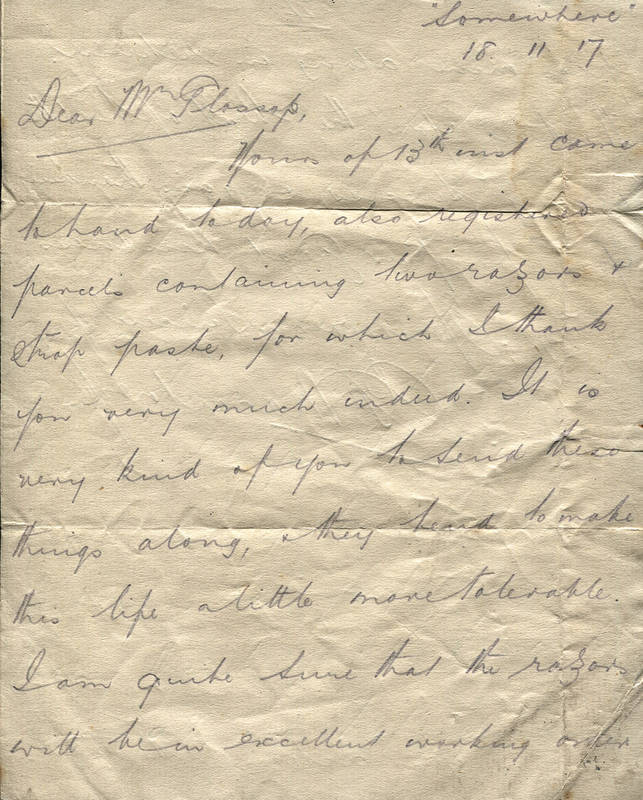 "Somewhere"
18. 11 17
Dear Mr Plossop,
Yours of 13th inst came
to hand today, also registered
parcels containing two razors &
strop paste, for which I thank
you very much indeed. It is
very kind of you to send these
things along, & they tend to make
this life a little more tolerable.
I am quite sure that the razors
will be in excellent working order